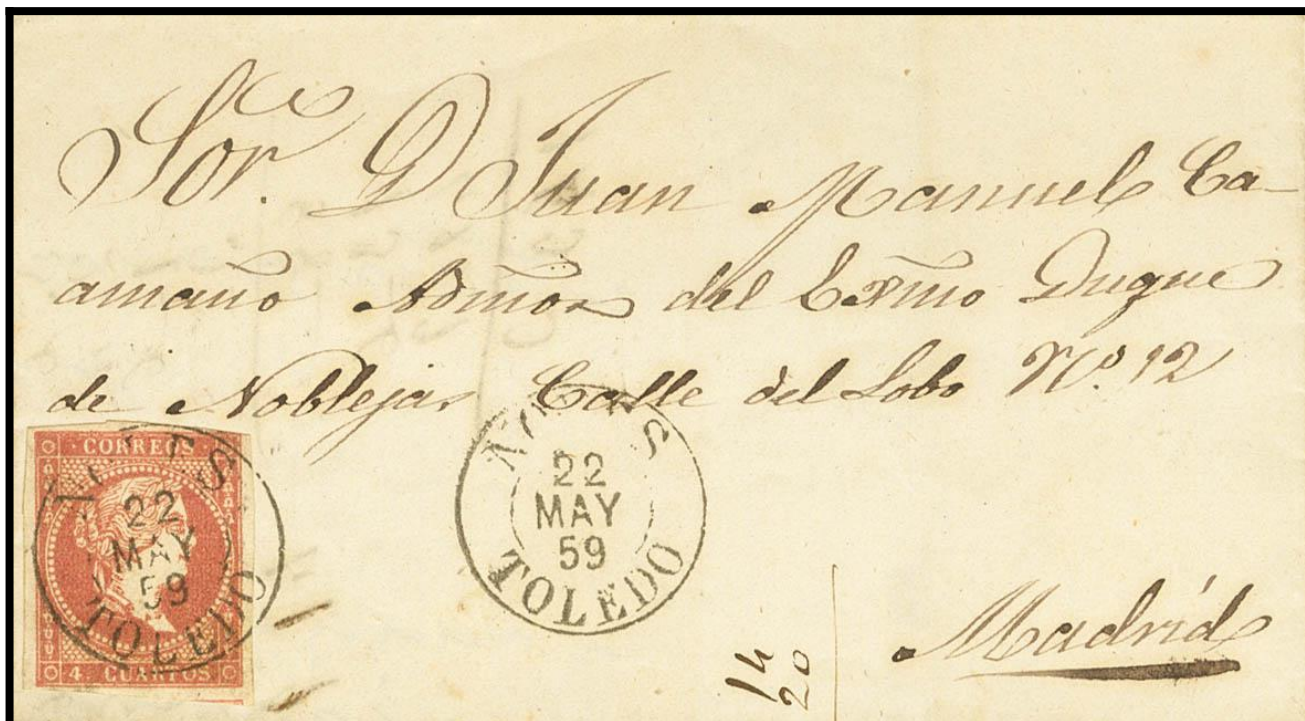 Sor. D Juan Manuel Ca-
amaño Admor del Exmo Duque
de Noblejas Calle del Lobo Nº. 12
CORREOS
22
MAY
59
TOLEDO
4. CUARTOS
22
MAY
59
TOLEDO
14
20
Madrid